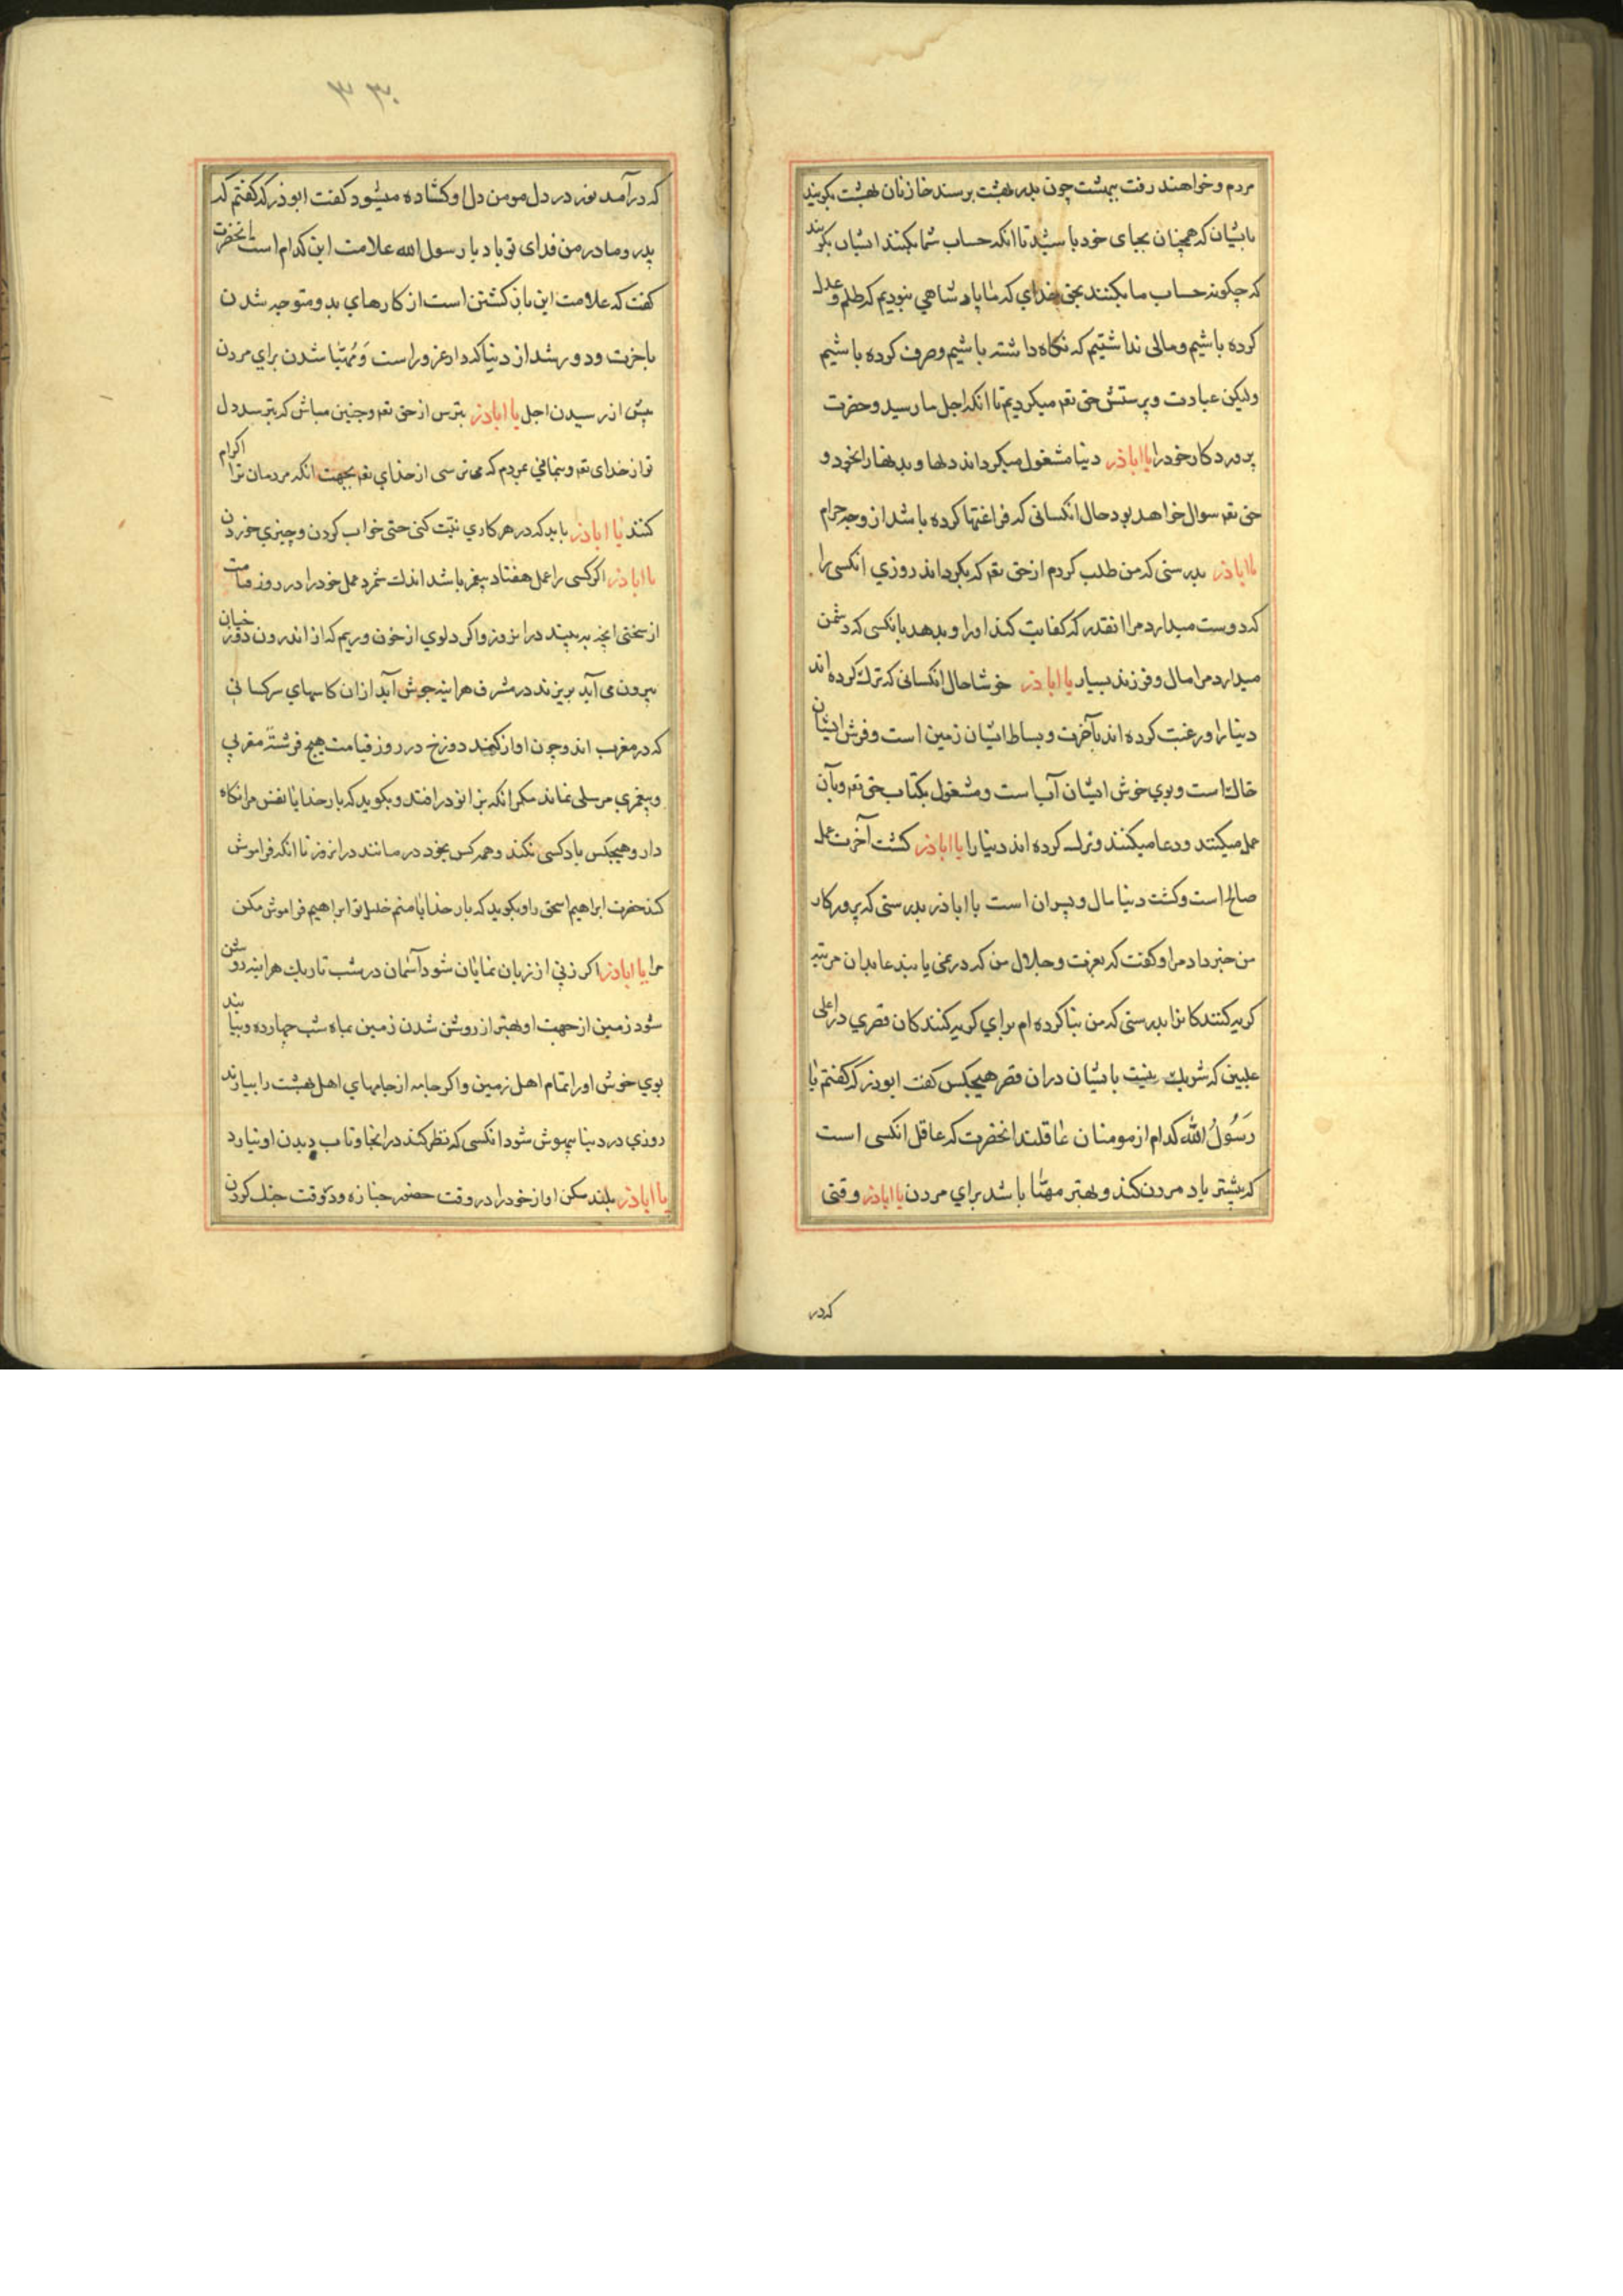 مردم و خواهند رفت ببهشت چون بدر بهشت برسند خازنان بهشت بکویند
بایشان که همچنان بجای خود باشید تا انکه حساب شما بکنند ایشان بکویند
که چکونه حساب ما بکنند بحق خدای که ما پادشاهی نبودیم که ظلم و عدل
کرده باشیم و مالی نداشتیم که نکاه داشته باشیم و صرف کرده باشیم
ولیکن عبادت و پرستش حق تعه میکردیم تا انکه اجل ما رسید و حضرت
پروردکار خود را یا اباذر دنیا مشغول میکرداند دلها و بدنها را بخود و
حق تعه سوال خواهد بود حال انکسانی که فراغتها کرده باشد از وجه حرام
یا اباذر بدرستی که من طلب کردم از حق تعه که بکرداند روزی انکسی را
که دوست میدارد مرا انقدر که کفایت کند او را و بدهد بانکسی که دشمن
میدارد مرا مال و فرزند بسیار یا اباذر خوشا حال انکسانی که ترک کرده اند
دنیا را و رغبت کرده اند بآخرت و بساط ایشان زمین است و فرش ایشان
خاک است و بوی خوش ایشان آب است و مشغول بکتاب حق تعه و بآن
عمل میکنند و دعا میکنند و ترک کرده اند دنیا را یا اباذر کشت آخرت عمل
صالح است و کشت دنیا مال و پسران است یا اباذر بدرستی که پرورکار
من خبر داد مرا و کفت که بعزت و جلال من که در نمی یابند عابدان مرتبه
کریه کنندکانرا بدرستی که من بنا کرده ام برای کریه کنندکان قصری در اعلی
علیین که شریک نیست با ایشان دران قصر هیچکس کفت ابوذر که کفتم یا
رَسُولُ الله کدام از مومنان عاقلند انحضرت که عاقل انکسی است
که بیشتر یاد مردن کند و بهتر مهیا باشد برای مردن یا اباذر وقتی
که در
۳۳۰
که درآمد نور در دل مومن دل او کشاده میشود کفت ابوذر که کفتم که
پدر و مادر من فدای تو باد یا رسول الله علامت این کدام است انحضرت
کفت که علامت این باز کشتن است از کارهای بد و متوجه شدن
باخرت و دور شد از دنیا که دار غرور است وَ مُهیّا شدن برای مردن
پیش از رسیدن اجل یا اباذر بترس از حق تعه و چنین مباش که بترسد دل
تو از خدای تعه و بنمائی بمردم که می ترسی از خدای تعه بجهت انکه مردمان ترا اکرام
کنند یا اباذر باید که در هر کاری نیّت کنی حتی خواب کردن و چیزی خوردن
یا اباذر اکر کسی را عمل هفتاد پیغمبر باشد اندک شمرد عمل خود را در روز قیامت
از سختی انچه به بیند در انروز و اکر دلوی از خون و ریم که از اندرون دوزخیان
بیرون می آید بریزند در مشرق هراینه جوش آید ازان کاسهای سر کسانی
که در مغرب اند و چون اواز کند دوزخ در روز قیامت هیچ فرشتهٔ مقربی
و پیغمبری مرسلی نماند مکر انکه بزانو در افتد و بکوید که بار خدایا نفس مرا نکاه
دار و هیچکس یاد کسی نکند و همه کس بخود در مانند در انروز تا انکه فراموش
کند حضرت ابراهیم اسحق را و بکوید که بار خدایا منم خلیل تو ابراهیم فراموش مکن
مرا یا اباذر اکر زنی از زنان نمایان شود آسمان در شب تاریک هراینه روشن
شود زمین از جهت او بهتر از روشن شدن زمین بماه شب چهارده و بیابند
بوی خوش او را تمام اهل زمین و اکر جامه از جامهای اهل بهشت را بیارند
روزی در دنیا بیهوش شود انکسی که نظر کند در انجا و تاب دیدن او نیارد
یا اباذر بلند مکن اواز خود را در وقت حضور جنازه و در وقت جنک کردن